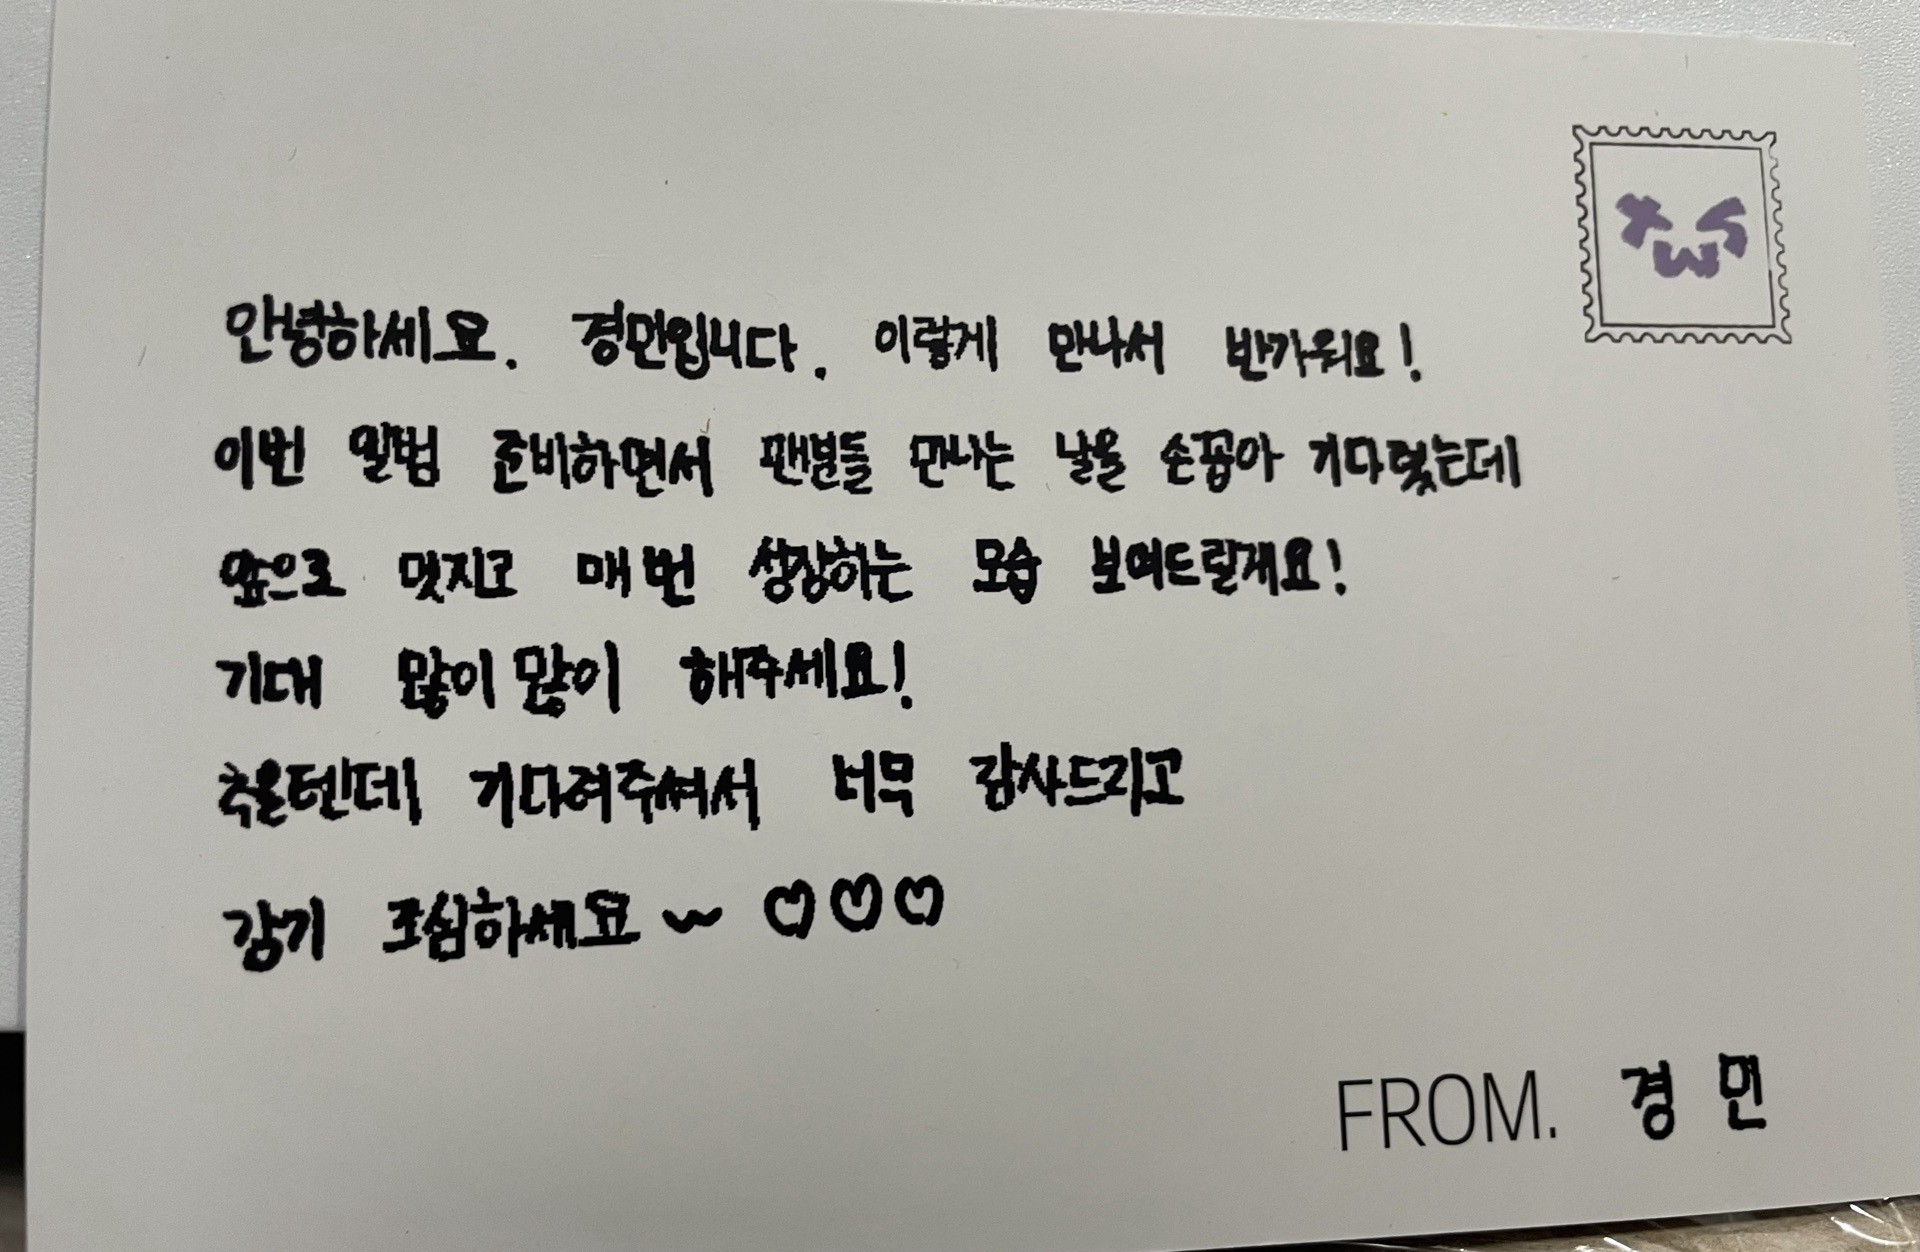 TWS
안녕하세요. 경민입니다. 이렇게 만나서 반가워요!
이번 앨범 준비하면서 팬분들 만나는 날을 손꼽아 기다렸는데
앞으로 멋지고 매번 성장하는 모습 보여드릴게요!
기대 많이많이 해주세요!
추울텐데 기다려주셔서 너무 감사드리고
감기 조심하세요~ ♡♡♡
FROM. 경민